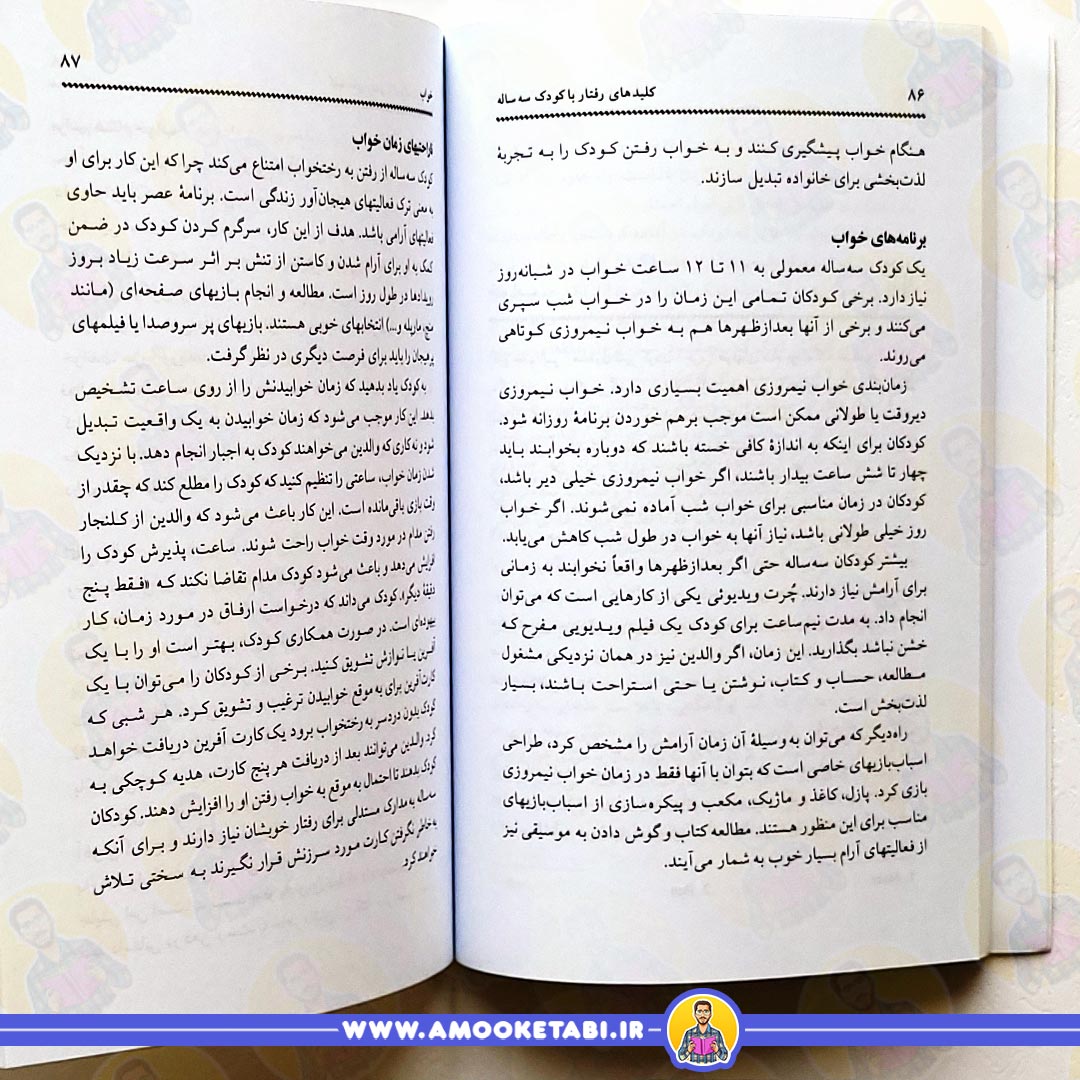 ۸۶
کلیدهای رفتار با کودک سه ساله
هنگام خواب پیشگیری کنند و به خواب رفتن کودک را به تجربهٔ
لذت‌بخشی برای خانواده تبدیل سازند.
برنامه‌های خواب
یک کودک سه‌ساله معمولی به ۱۱ تا ۱۲ ساعت خواب در شبانه‌روز
نیاز دارد. برخی کودکان تمامی این زمان را در خواب شب سپری
می‌کنند و برخی از آنها بعدازظهرها هم به خواب نیمروزی کوتاهی
می‌روند.
زمان‌بندی خواب نیمروزی اهمیت بسیاری دارد. خواب نیمروزی
دیروقت یا طولانی ممکن است موجب برهم خوردن برنامهٔ روزانه شود.
کودکان برای اینکه به اندازهٔ کافی خسته باشند که دوباره بخوابند باید
چهار تا شش ساعت بیدار باشند، اگر خواب نیمروزی خیلی دیر باشد،
کودکان در زمان مناسبی برای خواب شب آماده نمی‌شوند. اگر خواب
روز خیلی طولانی باشد، نیاز آنها به خواب در طول شب کاهش می‌یابد.
بیشتر کودکان سه‌ساله حتی اگر بعدازظهرها واقعاً نخوابند به زمانی
برای آرامش نیاز دارند. چُرت ویدیوئی یکی از کارهایی است که می‌توان
انجام داد. به مدت نیم‌ساعت برای کودک یک فیلم ویدیویی مفرح که
خشن نباشد بگذارید. این زمان، اگر والدین نیز در همان نزدیکی مشغول
مطالعه، حساب و کتاب، نوشتن یا حتی استراحت باشند، بسیار
لذت‌بخش است.
راه‌دیگر که می‌توان به وسیلهٔ آن زمان آرامش را مشخص کرد، طراحی
اسباب‌بازیهای خاصی است که بتوان با آنها فقط در زمان خواب نیمروزی
بازی کرد. پازل، کاغذ و ماژیک، مکعب و پیکره‌سازی از اسباب‌بازیهای
مناسب برای این منظور هستند. مطالعه کتاب و گوش دادن به موسیقی نیز
از فعالیتهای آرام بسیار خوب به شمار می‌آیند.
۸۷
خواب
ناراحتیهای زمان خواب
کودک سه‌ساله از رفتن به رختخواب امتناع می‌کند چرا که این کار برای او
به معنی ترک فعالیتهای هیجان‌آور زندگی است. برنامهٔ عصر باید حاوی
فعالیتهای آرامی باشد. هدف از این کار، سرگرم کردن کودک در ضمن
کمک به او برای آرام شدن و کاستن از تنش بر اثر سرعت زیاد بروز
رویدادها در طول روز است. مطالعه و انجام بازیهای صفحه‌ای (مانند
منچ، مارپله و...) انتخابهای خوبی هستند. بازیهای پر سروصدا یا فیلمهای
پرهیجان را باید برای فرصت دیگری در نظر گرفت.
به کودک یاد بدهید که زمان خوابیدنش را از روی ساعت تشخیص
بدهد. این کار موجب می‌شود که زمان خوابیدن به یک واقعیت تبدیل
شود و نه کاری که والدین می‌خواهند کودک به اجبار انجام دهد. با نزدیک
شدن زمان خواب، ساعتی را تنظیم کنید که کودک را مطلع کند که چقدر از
وقت بازی باقی‌مانده است. این کار باعث می‌شود که والدین از کلنجار
رفتن مدام در مورد وقت خواب راحت شوند. ساعت، پذیرش کودک را
افزایش می‌دهد و باعث می‌شود کودک مدام تقاضا نکند که «فقط پنج
دقیقهٔ دیگر». کودک می‌داند که درخواست ارفاق در مورد زمان، کار
بیهوده‌ای است. در صورت همکاری کودک، بهتر است او را با یک
آفرین یا نوازش تشویق کنید. برخی از کودکان را می‌توان با یک
کارت‌آفرین برای به موقع خوابیدن ترغیب و تشویق کرد. هر شبی که
کودک بدون دردسر به رختخواب برود یک کارت آفرین دریافت خواهد
کرد. والدین می‌توانند بعد از دریافت هر پنج کارت، هدیه کوچکی به
کودک بدهند تا احتمال به موقع به خواب رفتن او را افزایش دهند. کودکان
سه‌ساله به مدارک مستدلی برای رفتار خوبشان نیاز دارند و برای آنکه
به خاطر نگرفتن کارت مورد سرزنش قرار نگیرند به سختی تلاش
خواهند کرد.
WWW.AMOOKETABI.IR